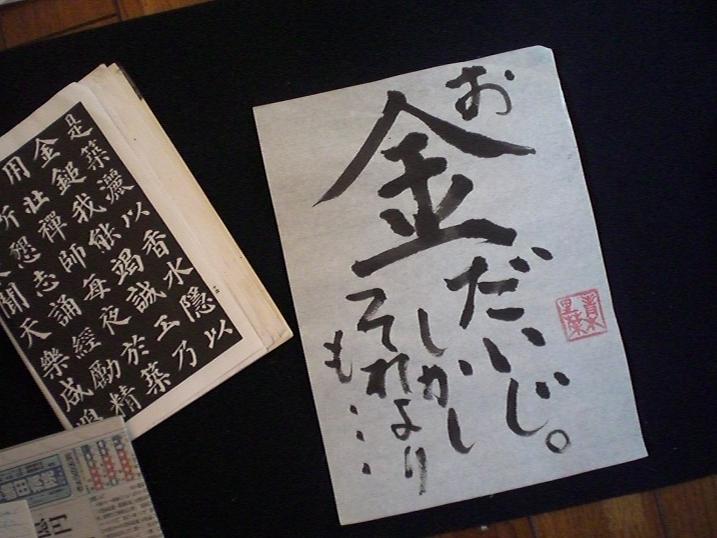 お金だいじ。
しかし
それより
も・・・
是築灑以香水隱以
金鎚我能竭誠工乃
用壯禪師每夜於築
所懇志誦經勵精
聞天樂咸